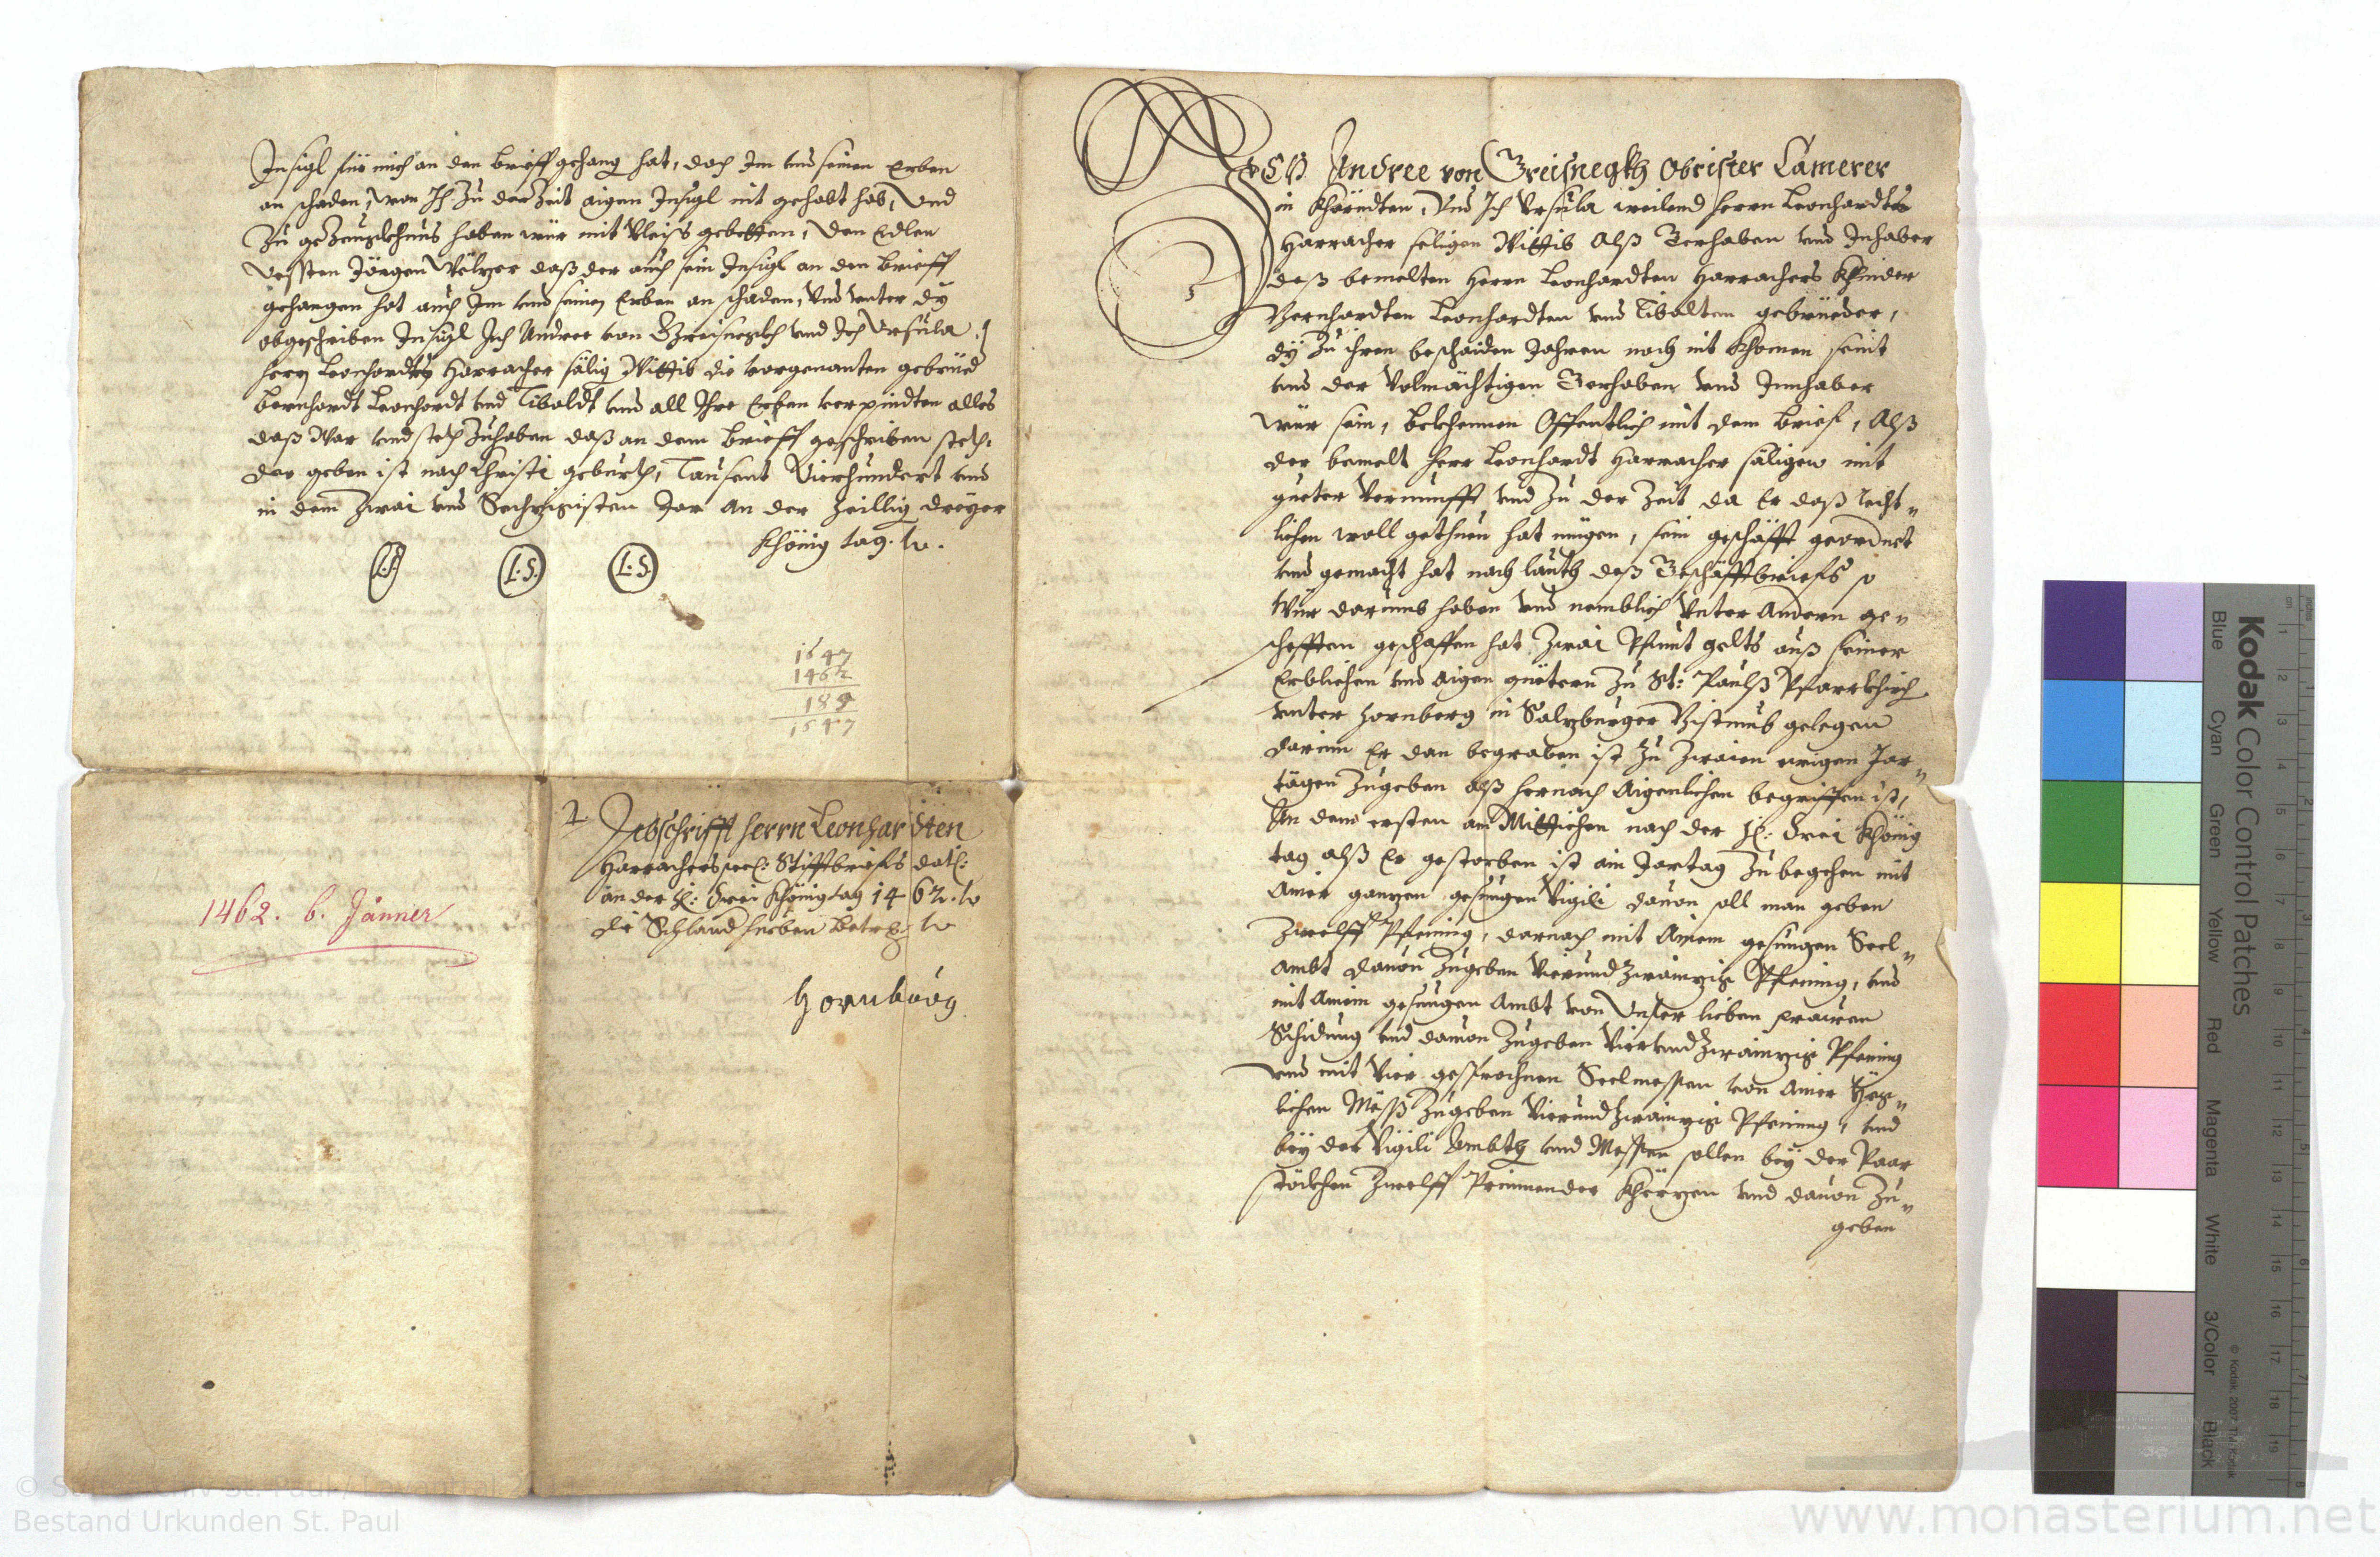 Insigl für mich an den brieff gehang hat, doch Im und seinen Erben
an schaden, wan Ich zu der Zeit aigen Insigl nit gehabt hab, Und
zu gezeugkhnus haben wür mit Vleiss gebetten, den Edlen
Vessten Jörgen Wölzer daß der auch sein Insigl an den brieff
gehangen hat auch Im und seinen Erben an schaden, Und unter dy
obgeschriben Insigl Ich Andree von Greisnegkh und Ich Ursula
herrn Leonhardten Harracher sälig Wittib die vorgenanten gebrüed
Bernhardt Leonhardt und Tiboldt und all Ihre Erben verpindten alles
daß War und stett zuhaben daß an dem brieff geschriben steth.
der geben ist nach Christi geburth, Tausent Vierhundert und
in dem Zwai und Sechzigisten Jar an der heillig dreyer
Khönig tag. 
L.S. L:S. L:S.
1647
1462
185
1647
1462. 6. Jänner
Abschrifft herrn Leonhardten
Harrachers seel: Stifftbriefs dat:
an der H: drei Khönig tag 1462.
die Schland hueben betr:
Hornburg
ICH Andree von Greisnegkh Obrister Camerer
in Khärndten, Und Ich Ursula weilend herrn Leonhardten
Harracher seligen Wittib Alß Gerhaben und Inhaber
deß bemelten herrn Leonhardten Harrachers Khinder
Bernhardten Leonhardten und Tibolten gebrüeder,
dÿ zu ihren beschaiden Jahren noch nit khomen seint
und der Volmächtigen Gerhaben und Innhaber
wür sein, bekhennen Offentlich mit dem brief, Alß
der bemelt herr Leonhardt Harracher säligen mit
gueter Vernunfft und zu der Zeit da Er daß recht-
lichen woll gethuen hat mügen, sein geschäfft geordnet
und gemacht hat nach lauth deß Geschäfftbriefs so
Wür darumb haben und nemblich Unter Andern ge-
schefften geschaffen hat Zwai Pfunt gelts auß seiner
Erblichen und aigen güetern zu St: Paulß Pfarrkhirch
unter hornberg in Salzburger Bistumb gelegen
darinn Er dan begraben ist zu zwaien ewigen Jar-
tägen zugeben alß hernach Aigenlichen begriffen ist,
An dem ersten am Mittichen nach der H: drei Khönig
tag alß Er gestorben ist ain Jartag zu begehen mit
Ainer ganzen gesungen Vigili davon soll man geben
Zwelff Pfening, darnach mit Ainem gesungen Seel-
ambt davon zugeben Vierundzwainzig Pfening, und
mit Ainem gesungen Ambt von Unser lieben frauen
Schidung und davon zugeben Vierundzwainzig Pfening
und mit Vier gesprochnen Seelmessen von Ainer Yeg-
lichen Mess zugeben Vierundzwainzig Pfening, und
bey der Vigili Ambth und Messen sollen bey der Paar
steckhen Zwelff Prinnender Kherzen und davon zu-
geben
Kodak Color Control Patches
Blue Cyan Green Yellow Red Magenta White 3/Color Black
© Kodak, 2007 TM: Kodak
© Stiftsarchiv St. Paul / Lavanttal
Bestand Urkunden St. Paul
www.monasterium.net